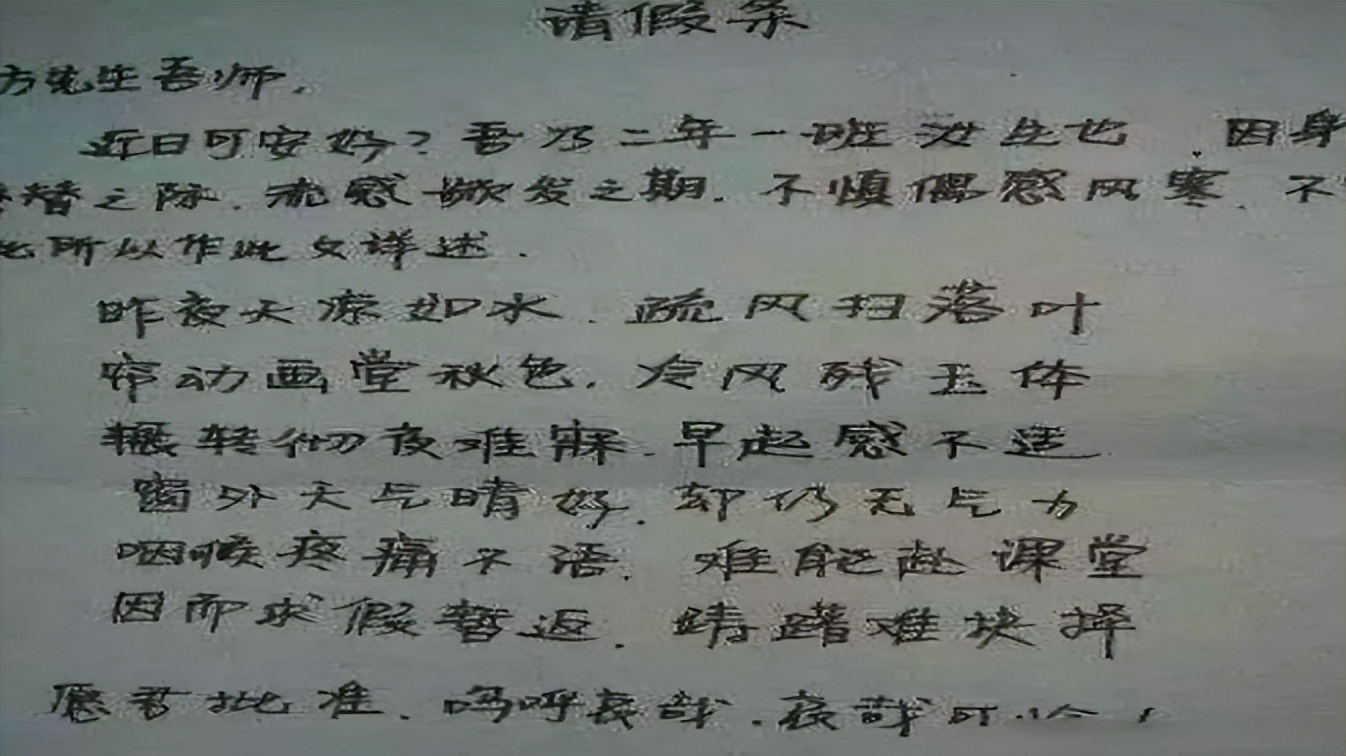 请假条
方先生吾师.
近日可安好?吾乃二年一班学生也.因身
替之际.流感频发之期.不慎偶感风寒.不
此所以作此文详述.
昨夜天凉如水.疏风扫落叶
帘动画堂秋色.冷风残玉体
辗转彻夜难寐.早起感不适.
窗外天气晴好.却仍无气力
咽喉疼痛不语.难能赴课堂
因而求假暂返.踌躇难抉择
愿君批准.呜呼哀哉.哀哉